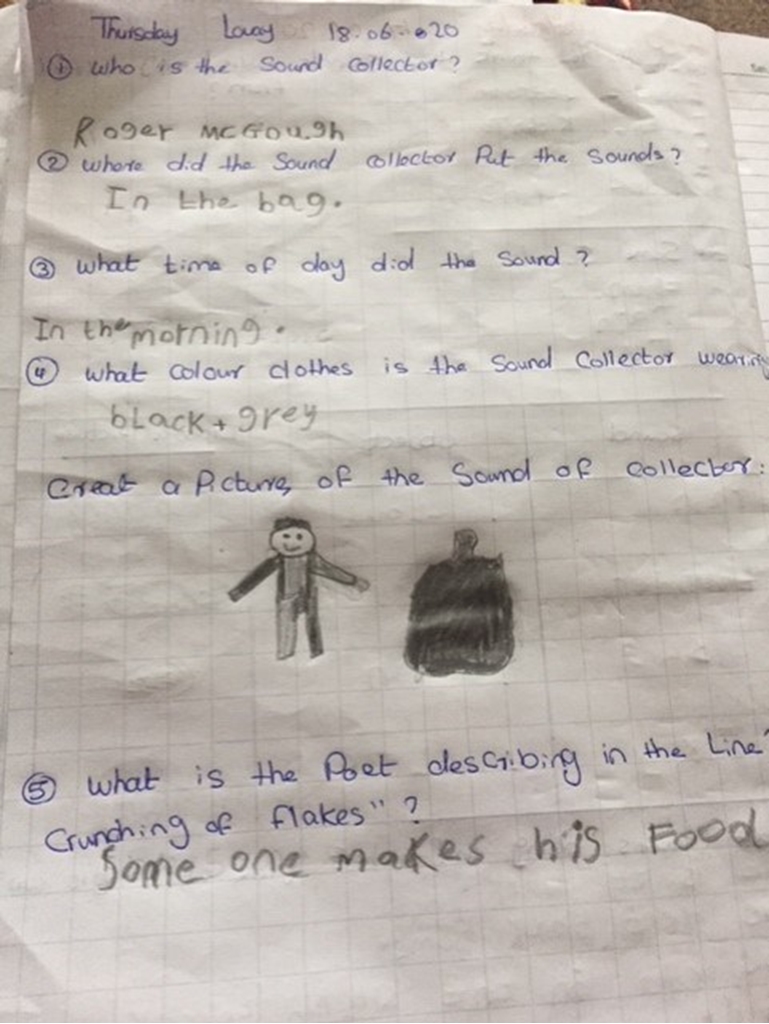 Thursday Lavay 18.06.020
① who is the Sound Collector?
Roger McGough
② where did the Sound collector Put the Sounds?
In the bag.
③ what time of day did the Sound?
In the morning.
④ what colour clothes is the Sound Collector wearing
black + grey
Creat a Picture of the Sound of collector:
⑤ what is the Poet describing in the Line"
Crunching of flakes"?
Some one makes his Food